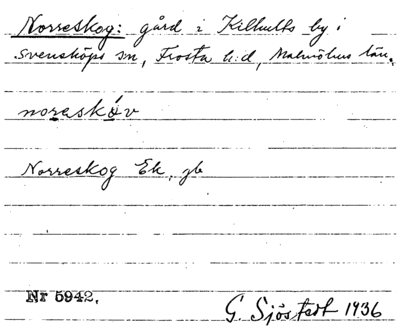 Norreskog: gård i Killhults by i
Svensköps sn, Frosta h:d, Malmöhus län.
noraskǻv
Norreskog Ek, gb
Nr 5942.
G. Sjöstedt 1936